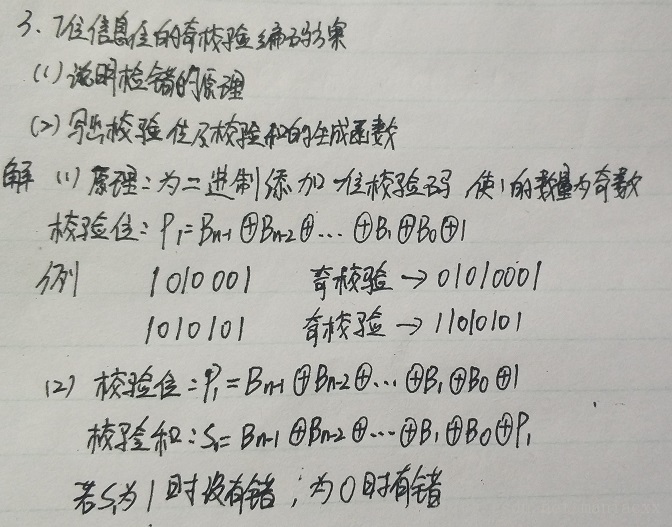 3、7位信息位的奇校验编码方案
(1) 说明检错的原理
(2) 写出校验位及校验和的生成函数
解 (1) 原理:为二进制添加一位校验码 使1的数量为奇数
校验位:P₁=Bn-1⊕Bn-2⊕…⊕B₁⊕B₀⊕1
例 1010001 奇校验→01010001
1010101 奇校验→11010101
(2) 校验位:P₁=Bn-1⊕Bn-2⊕…⊕B₁⊕B₀⊕1
校验和:S₁=Bn-1⊕Bn-2⊕…⊕B₁⊕B₀⊕P₁
若S₁为1时没有错;为0时有错